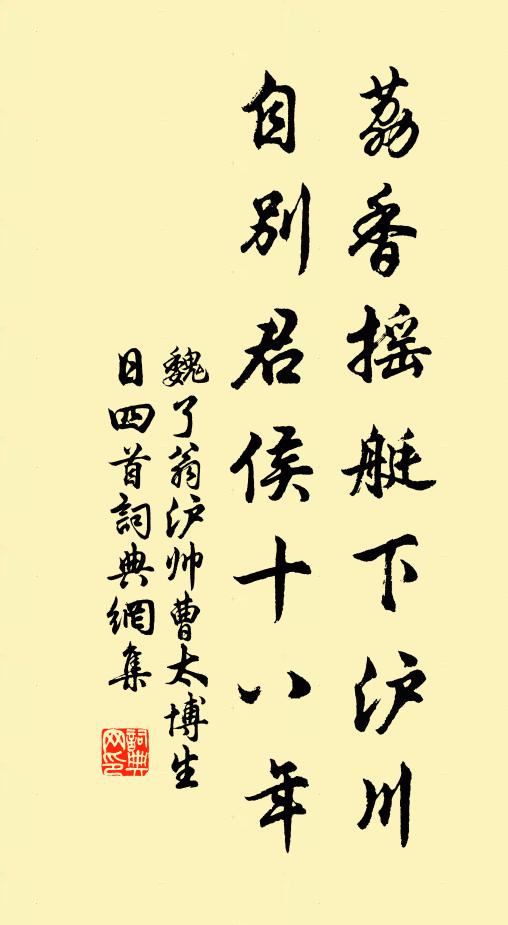 荔香摇艇下沪川
自别君侯十八年
魏了翁沪帅曹太博生
日四首词典網集
詞典網印